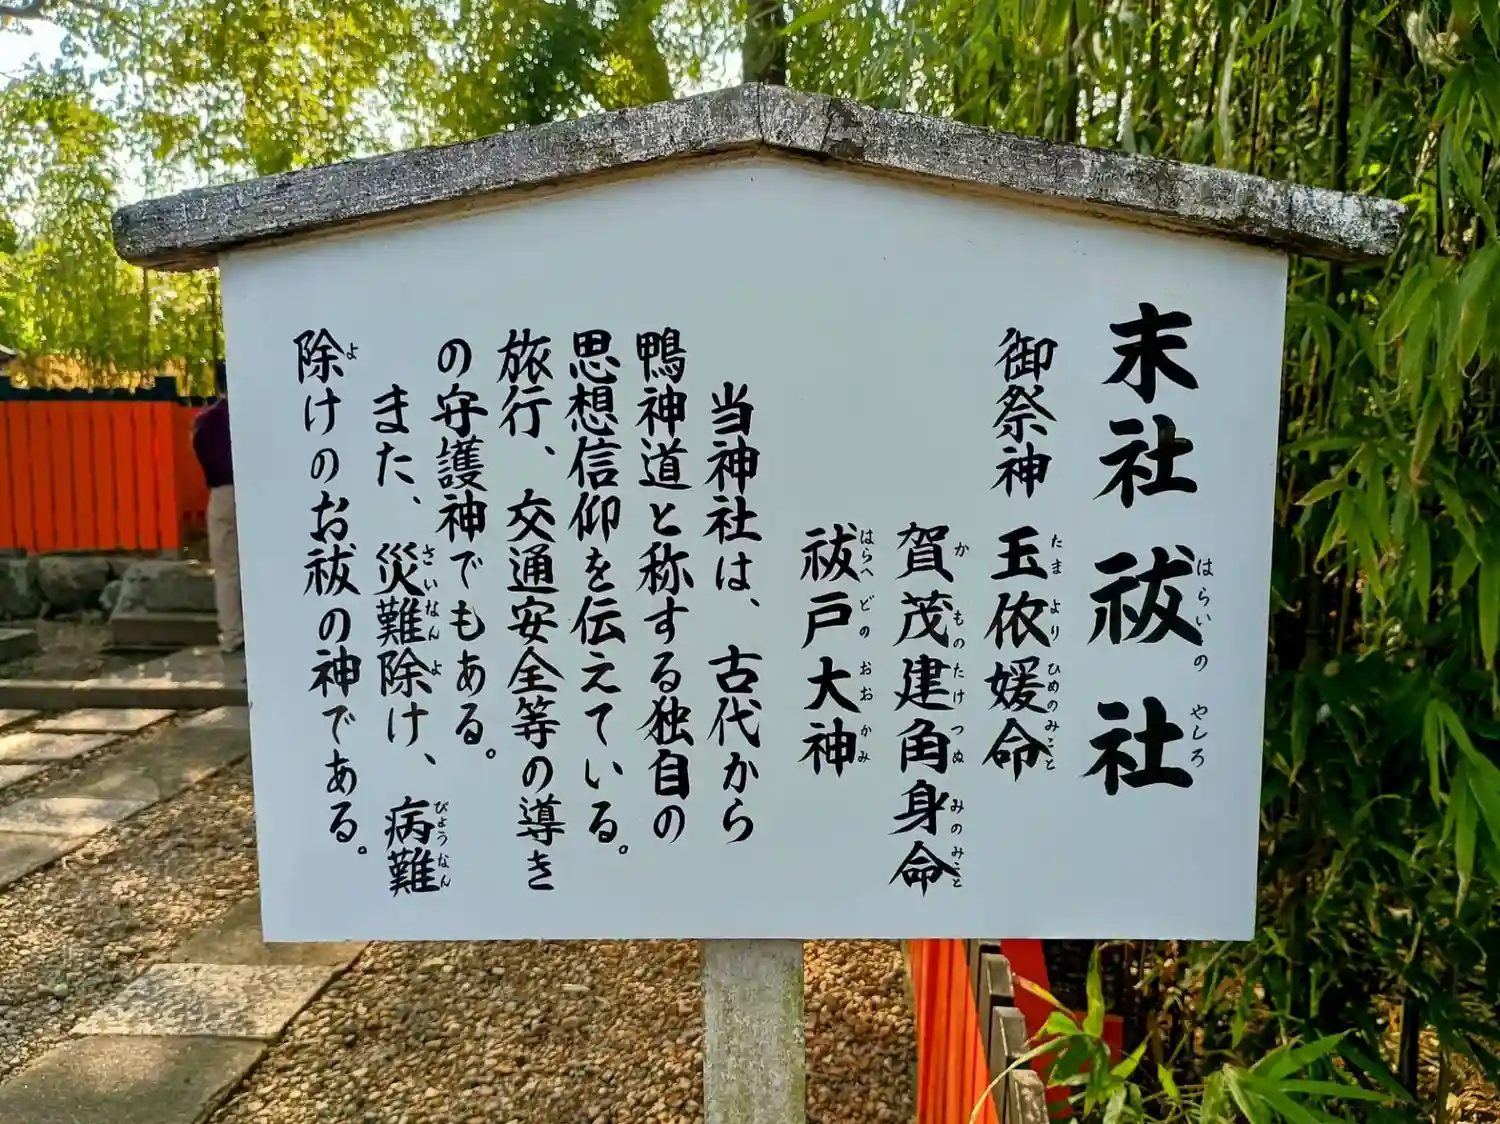 末社 祓社
はらいの やしろ
御祭神 玉依媛命
たま より ひめのみこと
賀茂建角身命
か もの たけ つぬ みの みこと
祓戸大神
はらへ どの おお かみ
当神社は、古代から
鴨神道と称する独自の
思想信仰を伝えている。
旅行、交通安全等の導き
の守護神でもある。
また、災難除け、病難
さいなん よ びょうなん
除けのお祓の神である。
よ